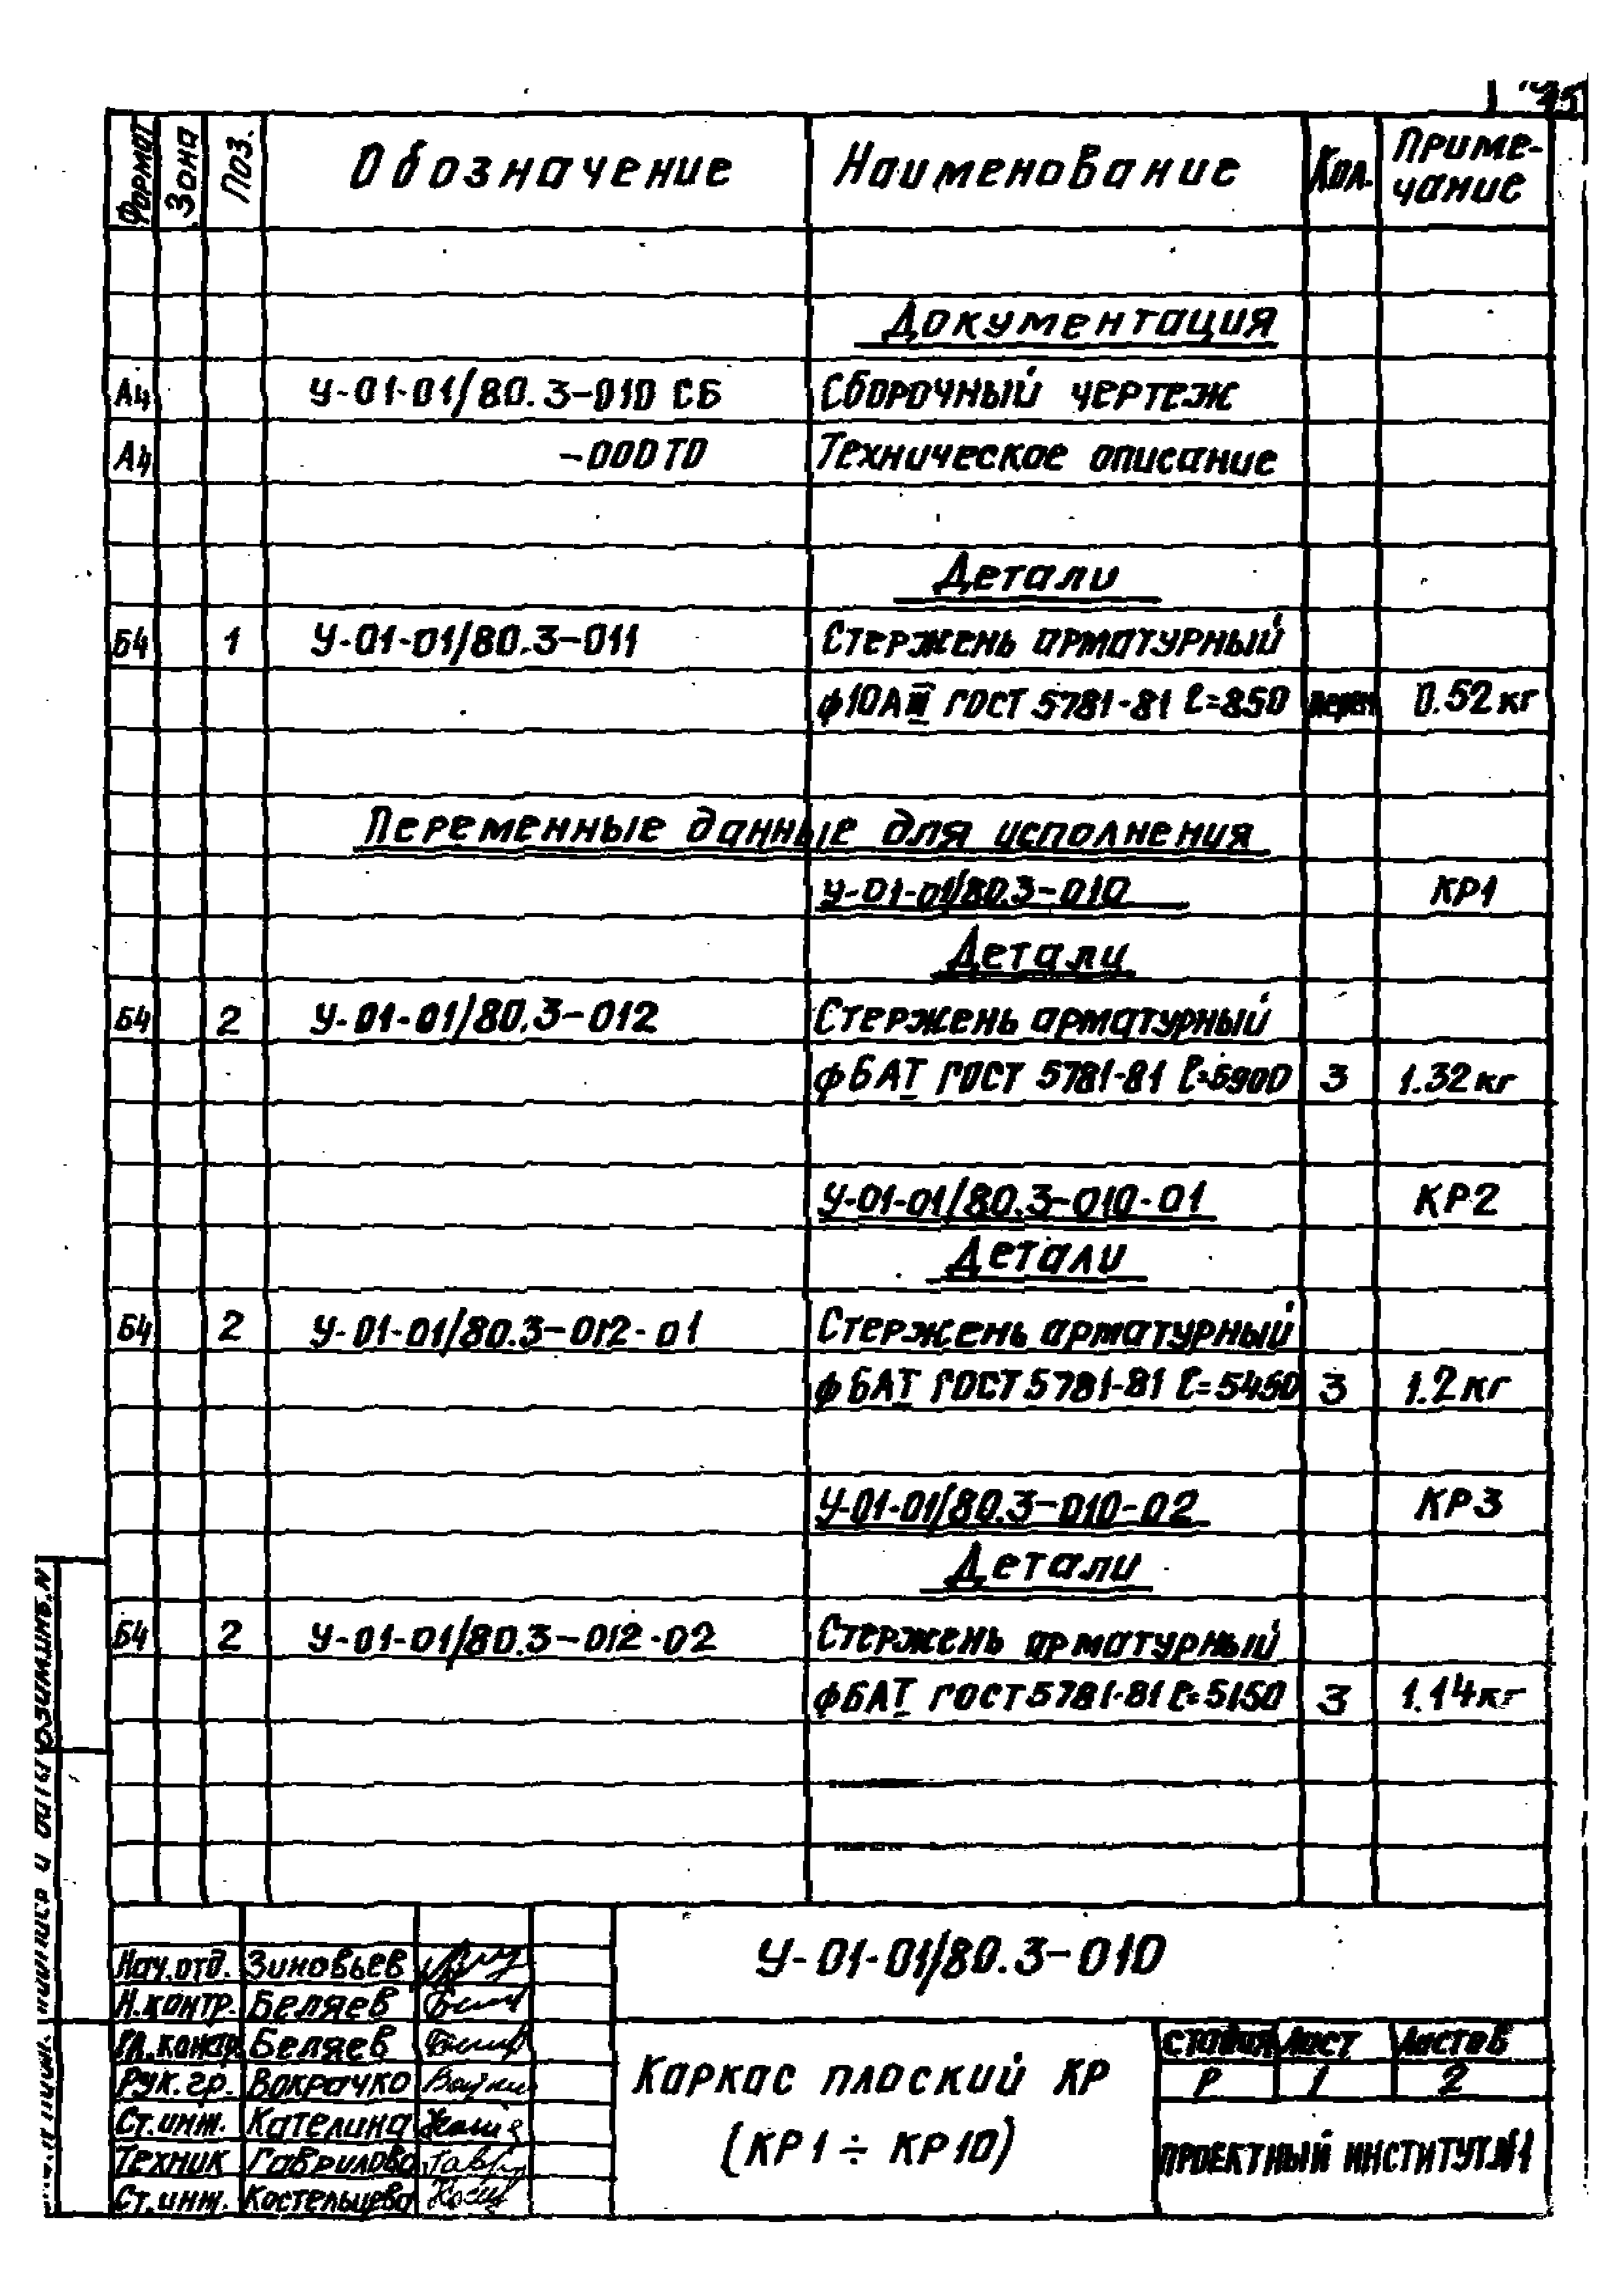 Формат Зона Поз. Обозначение Наименование Кол. Приме-
чание
Документация
А4 У-01-01/80.3-010 СБ Сборочный чертеж
А4 -000ТО Техническое описание
Детали
Б4 1 У-01-01/80.3-011 Стержень арматурный
ф10АIII ГОСТ 5781-81 ℓ=850 0.52кг
Переменные данные для исполнения
У-01-01/80.3-010 КР1
Детали
Б4 2 У-01-01/80.3-012 Стержень арматурный
ф6АI ГОСТ 5781-81 ℓ=5900 3 1.32кг
У-01-01/80.3-010-01 КР2
Детали
Б4 2 У-01-01/80.3-012-01 Стержень арматурный
ф6АI ГОСТ 5781-81 ℓ=5450 3 1.2кг
У-01-01/80.3-010-02 КР3
Детали
Б4 2 У-01-01/80.3-012-02 Стержень арматурный
ф6АI ГОСТ 5781-81 ℓ=5150 3 1.14кг
У-01-01/80.3-010
Нач.отд. Зиновьев
Н.контр. Беляев
Гл.констр. Беляев
Рук.гр. Вокрачко
Ст.инж. Кателина
Техник Гаврилова
Ст.инж. Костельцева
Каркас плоский КР
(КР1 ÷ КР10)
Стадия Лист Листов
Р 1 2
ПРОЕКТНЫЙ ИНСТИТУТ №1